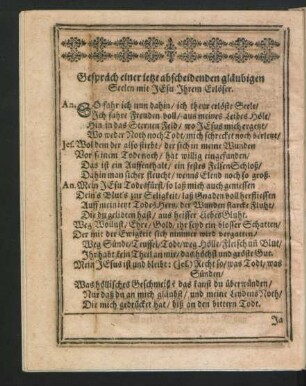 Gespräch einer jetzt abscheidenden gläubigen
Seelen mit JEsu Ihrem Erlöser.
An. SO fahr ich nun dahin/ ich theur erlöste Seele/
Ich fahre Freuden voll/ aus meines Leibes Höle/
Hin in das Sternen Feld/ wo JEsus mich ergent/
Wo weder Noth noch Todt/ mich schrecket noch verletzt/
Jes. Wol dem der also stirbt/ der sich in meine Wunden
Vor seinem Tode noch/ hat willig eingefunden/
Das ist ein Auffenthalt/ ein festes Felsen Schloß/
Dahin man sicher fleucht/ wenns Elend noch so groß.
An. Mein JEsu Todesfürst/ so laß mich auch geniessen
Dein's Blut's zur Seligkeit/ laß Gnaden voll herfliessen
Auff mein Hertz der Wunden starcke Fluht/
Die du gelidten hast/ aus heisser Liebes Gluht.
Weg Wollust/ Ehre/ Gold/ ihr seyd ein blosser Schatten/
Der mit der Ewigkeit sich nimmer wird vergatten/
Weg Sünde/ Teuffel/ Todt/ weg Hölle/ Fleisch und Blut/
Ihr habt kein Theil an mir/ das höchst und gröste Gut.
Mein JEsus ist und bleibt: (Jes.) Recht so/ was Todt/ was
Sünden/
Was höllisches Geschmeiß? das kanst du überwinden/
Nur daß du an mich gläubst/ und meine Leydens Noth/
Die mich gedrücket hat/ biß an den bittern Todt.
Ja